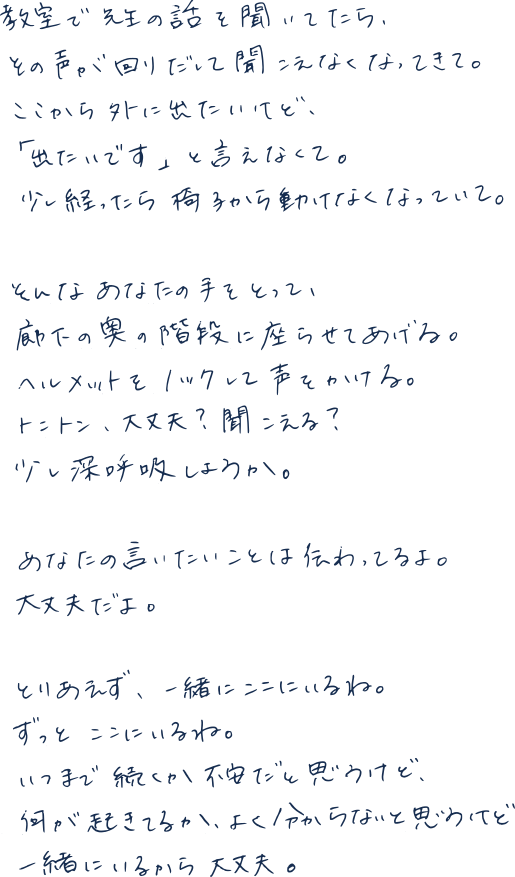 教室で先生の話を聞いてたら、
その声が回りだして聞こえなくなってきて。
ここから外に出たいけど、
「出たいです」と言えなくて。
少し経ったら椅子から動けなくなっていて。
そんなあなたの手をとって、
廊下の奥の階段に座らせてあげる。
ヘルメットをノックして声をかける。
トントン、大丈夫？聞こえる？
少し深呼吸しようか。
あなたの言いたいことは伝わってるよ。
大丈夫だよ。
とりあえず、一緒にここにいるね。
ずっとここにいるね。
いつまで続くか不安だと思うけど、
何が起きてるか、よく分からないと思うけど
一緒にいるから大丈夫。